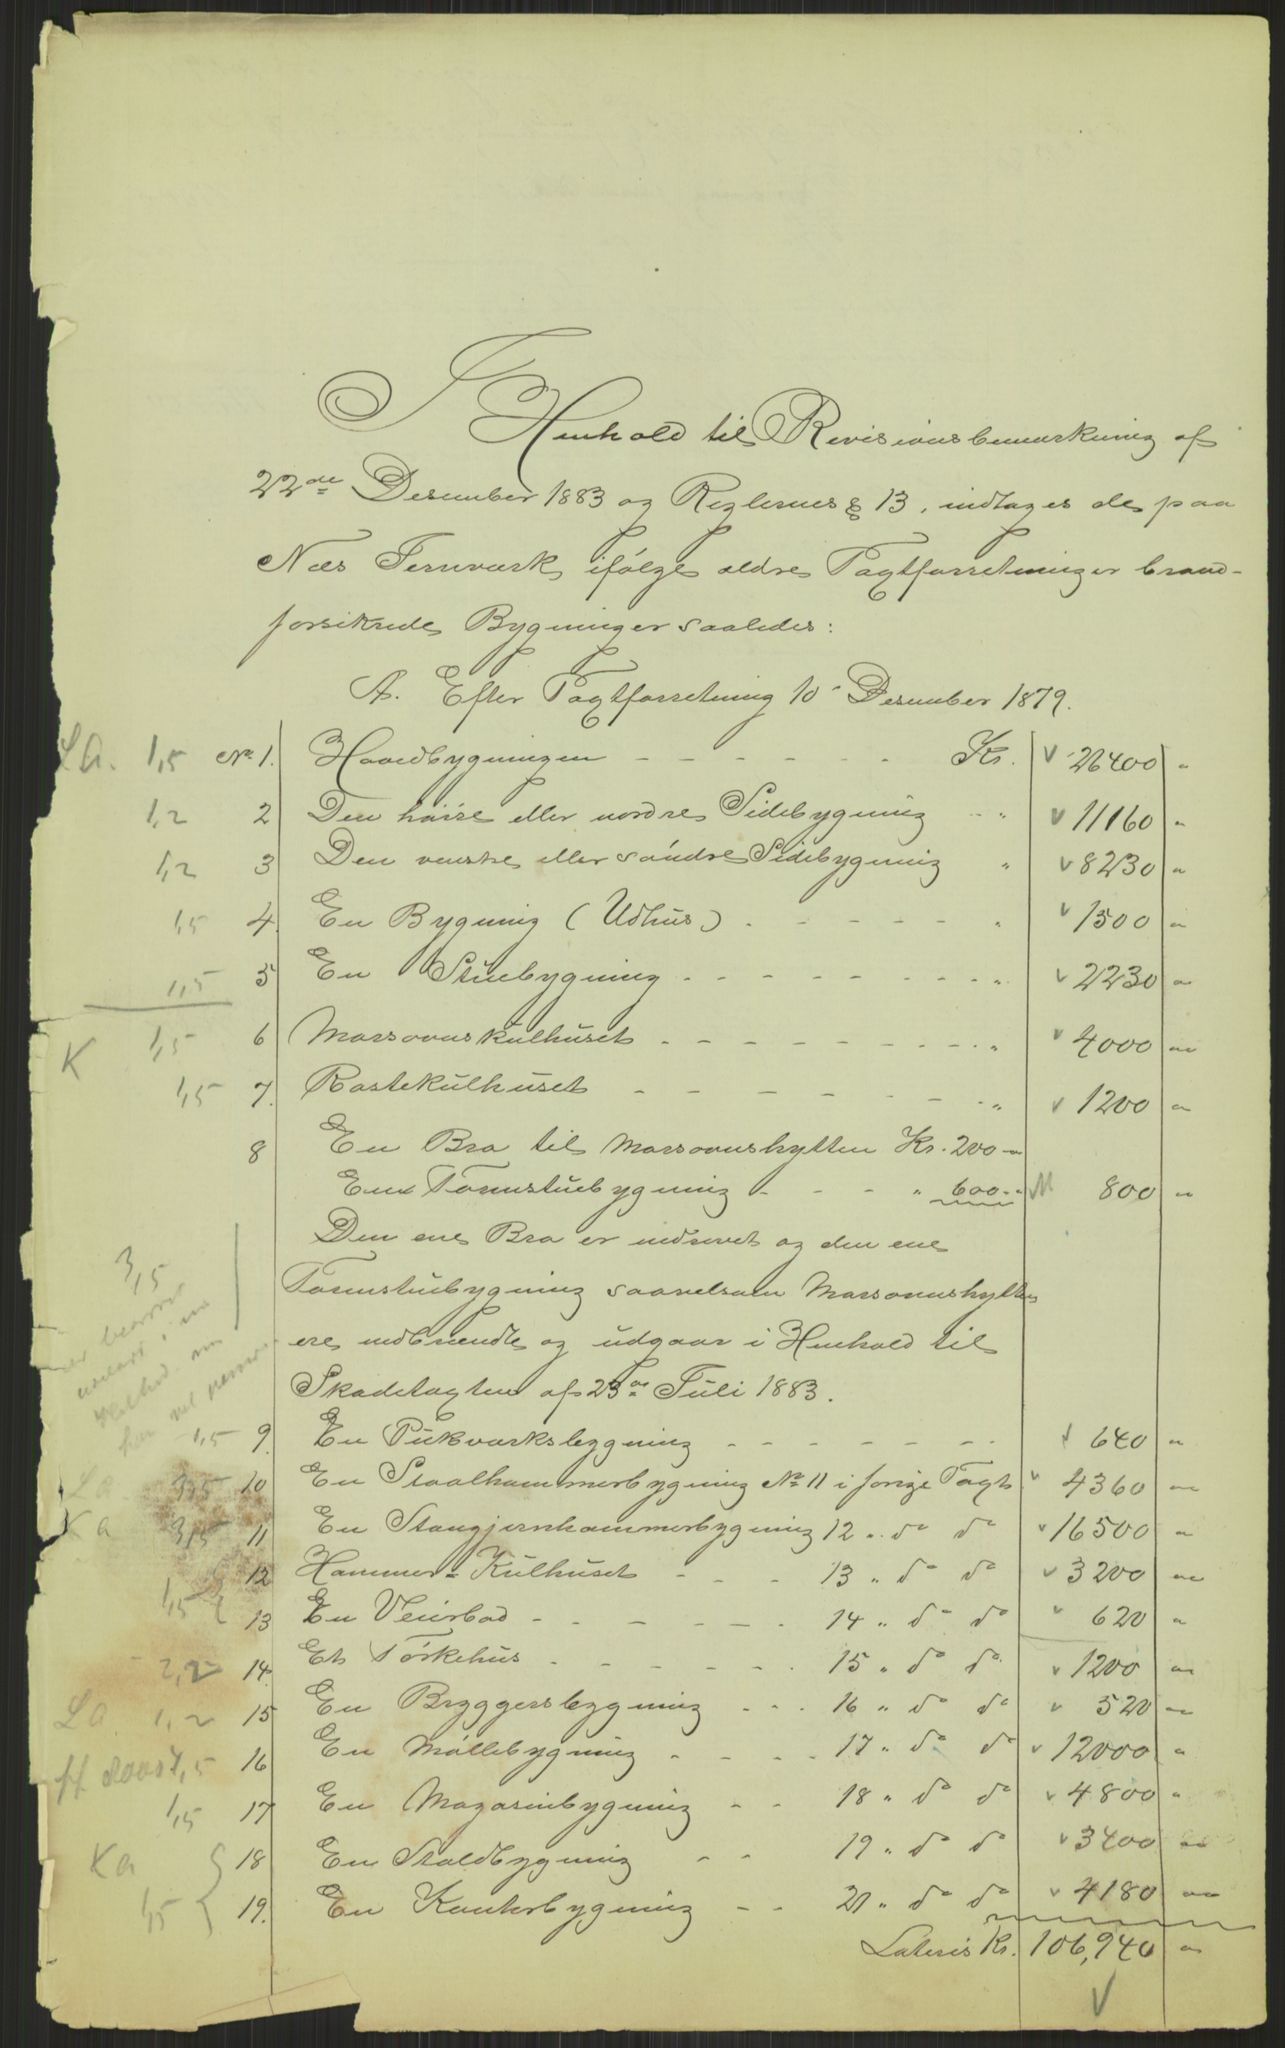 I Henhold til Revisionsbemærkning af
22de Desember 1883 og Reglernes § 13, indtages de paa
Næs Jernværk ifølge ældre Tagtforretninger brand-
forsikrede Bygninger saaledes:
A. Efter Tagtforretning 10 Desember 1879.
La. 1,5 No 1. Hovedbygningen - - - - - - Kr. 26400 "
1,2 2 Den høire eller nordre Sidebygning - " 11160 "
1,2 3 Den venstre eller søndre Sidebygning " 8230 "
1,5 4. En Bygning (Udhus) - - - - - " 1500 "
1,5 5 En Stuebygning - - - - - - - " 2230 "
K 1,5 6 Massovnskulhuset - - - - - - - " 4000 "
1,5 7. Rostekulhuset - - - - - - - " 1200 "
8 En Bro til Massovnshytten Kr. 200 "
En Tømstuebygning - - - " 600 " 800 "
Den ene Bro er nedrevet og den ene
Tømstuebygning saavelsom Massovnshytten
ere nedbrændte og udgaar i Henhold til
Skadetagten af 23de Juli 1883.
3,5
1,5 9. En Pukværksbygning - - - - - - 640 "
La 3,5 10 En Staalhammerbygning No 11 i forige Tagt 4360 "
Ka 3,5 11 En Stangjernhammerbygning 12 " do do 16500 "
12 Hammer-Kulhuset - - - 13 " do do 3200 "
1,5 { 13 En Veierbod - - - - - - 14 " do do 620 "
2,2 14. Et Tørkehus - - - - - - 15 " do do 1200 "
La 1,2 15 En Bryggersbygning - - - 16 " do do 520 "
1,5 16 En Møllebygning - - - - 17 " do do 12000 "
1,5 17 En Magasinbygning - - 18 " do do 4800 "
Ka { 18 En Staldbygning - - 19 " do do 3400 "
1,5 19. En Kontorbygning - - 20 " do do 4180 "
Lateris Kr. 106,940 "